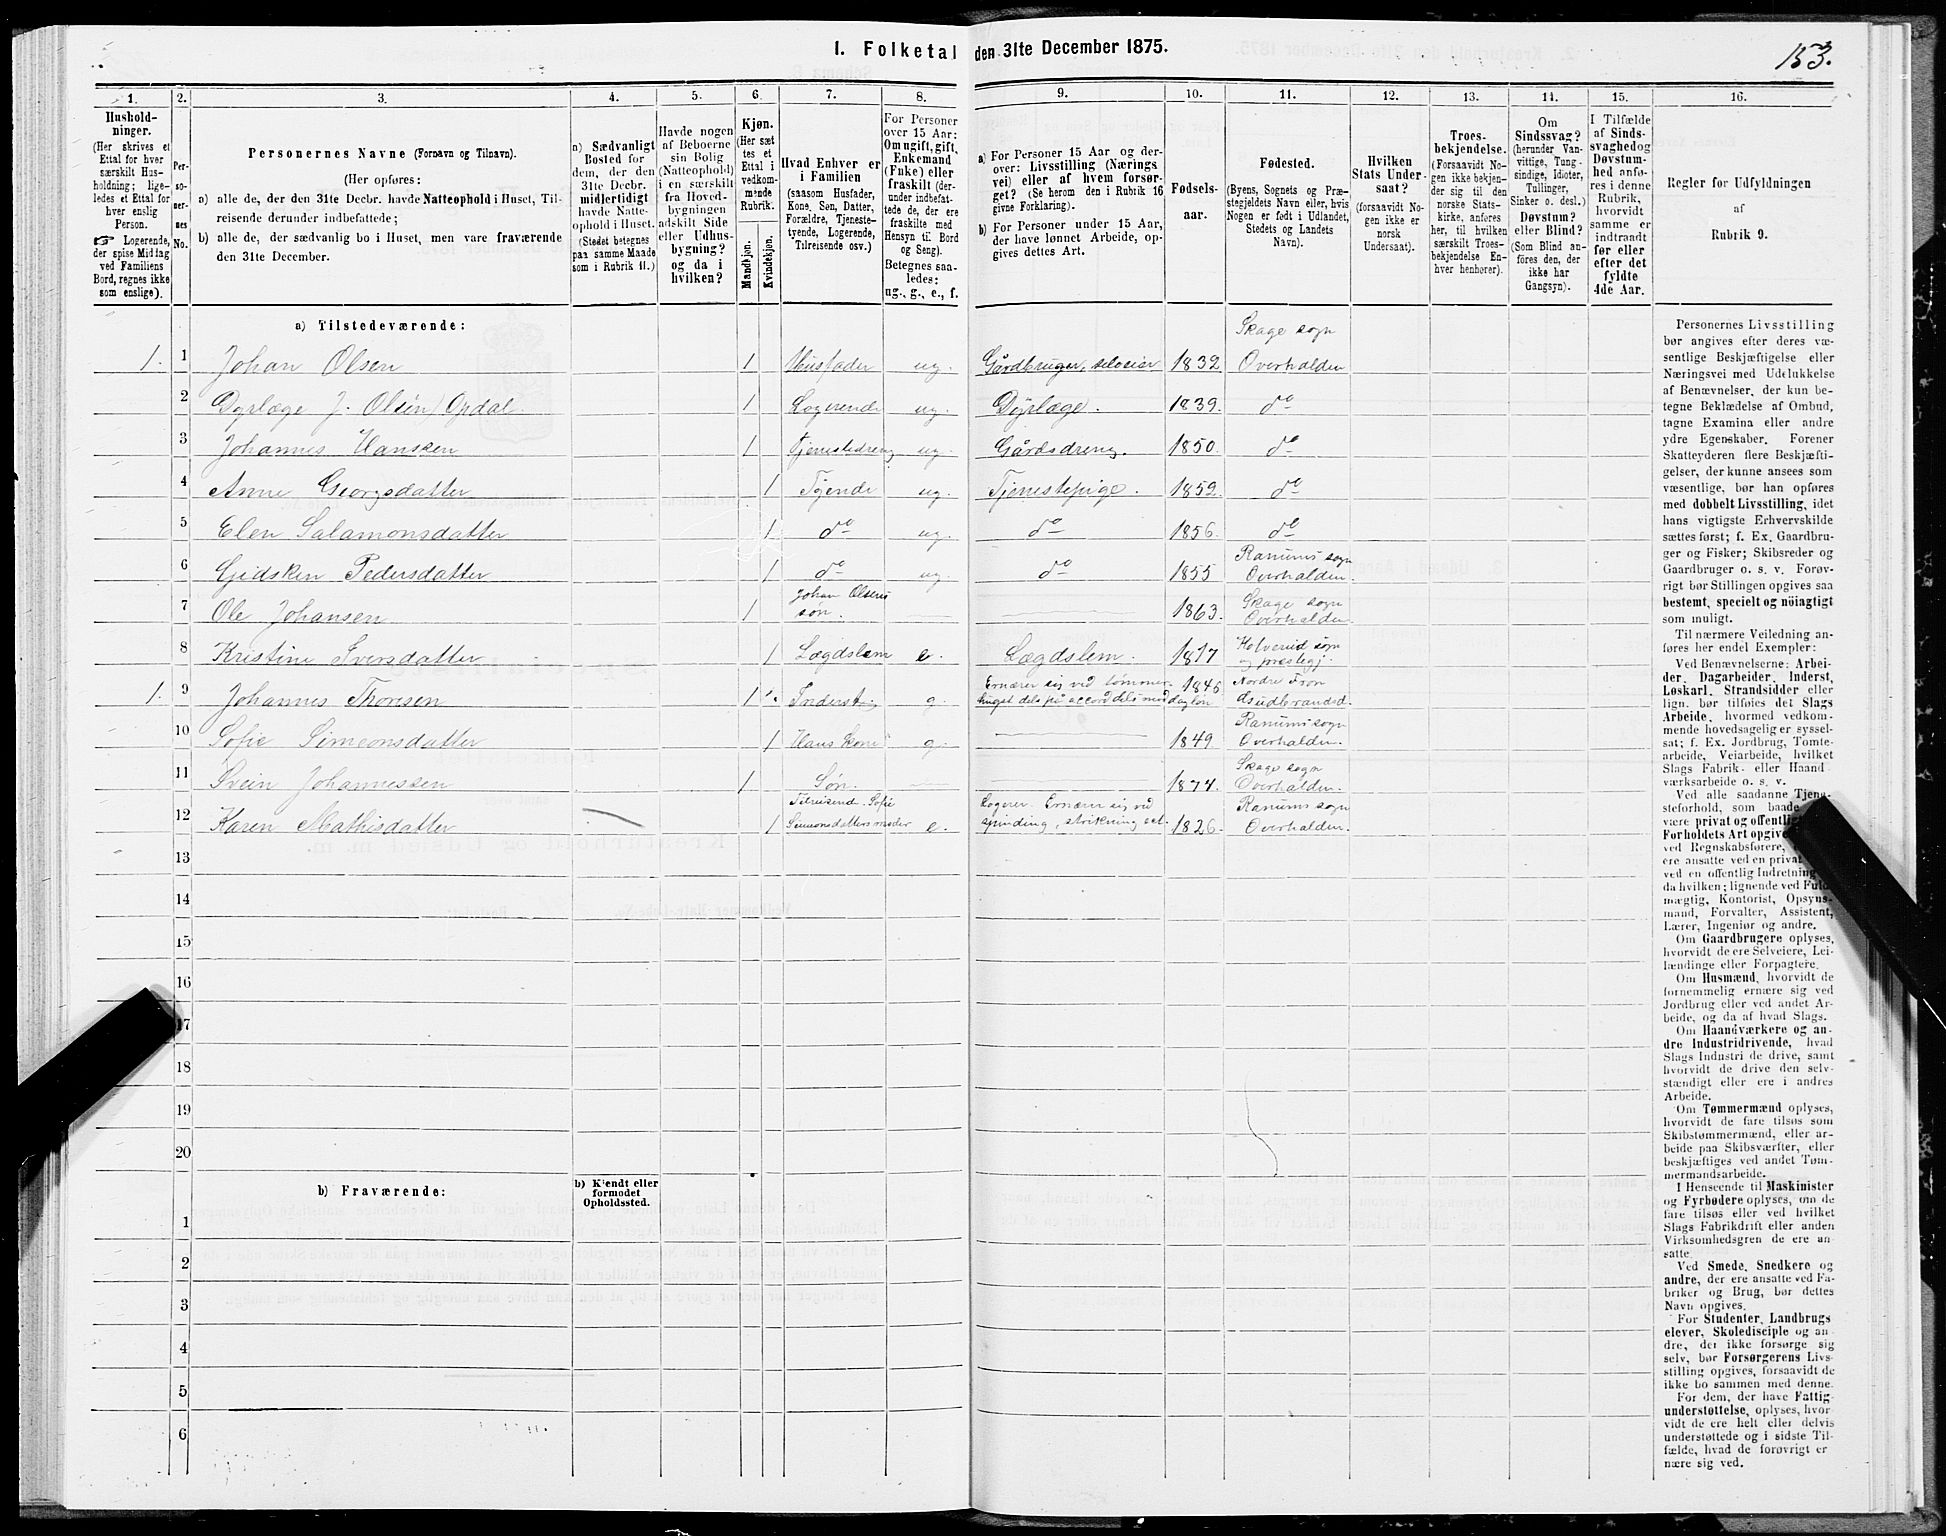 I. Folketal den 31te December 1875.
153.
1. 2. 3. 4. 5. 6. 7. 8. 9. 10. 11. 12. 13. 14. 15. 16.
Husholdninger.
(Her skrives et
Ettal for hver
særskilt Husholdning;
ligeledes et Ettal for
hver enslig
Person.
☞ Logerende,
der spise Middag
ved Familiens
Bord, regnes ikke
som enslige).
Personernes No.
Personernes Navne (Fornavn og Tilnavn).
(Her opføres:
a) alle de, der den 31te Decbr. havde Natteophold i Huset, Tilreisende derunder indbefattede;
b) alle de, der sædvanlig bo i Huset, men vare fraværende
den 31te December.
a) Sædvanligt
Bosted for
dem, der den
31te Decbr.
midlertidigt
havde Natteophold i Huset.
(Stedet betegnes
paa samme Maade
som i Rubrik 11.)
Havde nogen
af Beboerne
sin Bolig
(Natteophold)
i en særskilt
fra Hovedbygningen
adskilt Side
eller Udhusbygning?
og da i
hvilken?
Kjøn.
(Her sættes et
Ettal i
vedkommende
Rubrik.
Mandkjøn.
Kvindekjøn.
Hvad Enhver er
i Familien
(saasom Husfader,
Kone, Søn, Datter,
Forældre, Tjenestetyende, Logerende,
Tilreisende osv.)
For Personer
over 15 Aar:
Om ugift, gift,
Enkemand
(Enke) eller
fraskilt (derunder indbefattede de, der ere
fraskilte med
Hensyn til Bord
og Seng).
Betegnes saaledes:
ug., g., e., f.
a) For Personer 15 Aar og derover: Livsstilling (Næringsvei) eller af hvem forsørget? (Se herom den i Rubrik 16
givne Forklaring).
b) For Personer under 15 Aar,
der have lønnet Arbeide, opgives dettes Art.
Fødselsaar.
Fødested.
(Byens, Sognets og Præstegjeldets Navn eller, hvis
Nogen er født i Udlandet,
Stedets og Landets
Navn).
Hvilken
Stats Undersaat?
(forsaavidt Nogen ikke er
norsk
Undersaat).
Troesbekjendelse.
(Forsaavidt Nogen ikke bekjender sig til den
norske Statskirke, anføres
her, til hvilken
særskilt Troesbekjendelse Enhver henhører).
Om
Sindssvag?
(herunder Vanvittige, Tungsindige, Idioter,
Tullinger,
Sinker o. desl.)
Døvstum?
eller Blind?
(Som Blind anføres den, der
ikke har
Gangsyn).
I Tilfælde
af Sindssvaghed og
Døvstumhed anføres i denne
Rubrik,
hvorvidt
samme er
indtraadt
før eller
efter det
fyldte
4de Aar.
Regler for Udfyldningen
af
Rubrik 9.
a) Tilstedeværende:
1. 1 Johan Olsen 1 Husfader ug. Gårdbruger, selveier 1832 Skage sogn Overhalden
2 Dyrlæge J. Olsen Opdal. 1 Logerende ug. Dyrlæge. 1839. do
3 Johannes Hansken 1 Tjenestedreng ug. Gårdsdreng. 1850. do
4 Anne Georgsdatter 1 Tyende ug. Tjenestepige. 1852. do
5 Elen Salamonsdatter 1 do ug. do 1856. do
6 Gidsken Pedersdatter 1 do ug. do 1855 Ranums sogn Overhalden.
7 Ole Johansen 1 Johan Olsens søn. 1863. Skage sogn Overhalden.
8 Kristine Iversdatter 1 Lægdslem e. Lægdslem. 1817 Kolvereid sogn og præstegj.
1. 9 Johannes Thorsen 1 Inderst g. Ernærer sig ved tømmerhugst dels på accord dels mod dagløn 1846 Nordre Fron Gudbrandsd.
10 Sofie Simeonsdatter 1 Hans kone g. 1849. Ranums sogn Overhalden.
11 Svein Johannessen 1 Søn. 1874. Skage sogn Overhalden.
12 Karen Mathisdatter 1 Tilreisend. Sofie Simeonsdatters moder e. Logerer. Ernærer sig ved spinding, strikning ect. 1826. Ranums sogn Overhalden.
13
14
15
16
17
18
19
20
b) Fraværende:
b) Kjendt eller
formodet
Opholdssted.
1
2
3
4
5
6
Personernes Livsstilling
bør angives efter deres væsentlige Beskjæftigelse eller
Næringsvei med Udelukkelse
af Benævnelser, der kun betegne Beklædelse af Ombud,
tagne Examina eller andre
ydre Egenskaber. Forener
Skatteyderen flere Beskjæftigelser, der kunne ansees som
væsentlige, bør han opføres
med dobbelt Livsstilling, idet
hans vigtigste Erhvervskilde
sættes først; f. Ex. Gaardbruger og Fisker; Skibsreder og
Gaardbruger o. s. v. Forøvrigt bør Stillingen opgives saa
bestemt, specielt og nöiagtigt
som muligt.
Til nærmere Veiledning anføres her endel Exempler:
Ved Benævnelserne: Arbeider, Dagarbeider, Inderst,
Løskarl, Strandsidder eller
lign. bør tilføies det Slags
Arbeide, hvormed vedkommende hovedsagelig er sysselsat; f. Ex. Jordbrug, Tomtearbeide, Veiarbeide, hvilket
Slags Fabrik- eller Haandværksarbeide o. s. v.
Ved alle saadanne Tjenesteforhold, som baade
være privat og offentlig
Forholdets Art opgives
ved Regnskabsførere,
ere ansatte ved en privat
ved en offentlig Indretning
da hvilken; lignende ved Fuldmægtig, Kontorist, Opsynsmand, Forvalter, Assistent,
Lærer, Ingeniør og andre.
Om Gaardbrugere oplyses,
hvorvidt de ere Selveiere, Leilændinge eller Forpagtere.
Om Husmænd, hvorvidt de
fornemmelig ernære sig ved
Jordbrug eller ved andet Arbeide, og da af hvad Slags.
Om Haandværkere og andre Industridrivende, hvad
Slags Industri de drive, samt
hvorvidt de drive den selvstændigt eller ere i andres
Arbeide.
Om Tømmermænd oplyses,
hvorvidt de fare tilsøs som
Skibstømmermænd, eller arbeide paa Skibsværfter, eller
beskjæftiges ved andet Tømmermandsarbeide.
I Henseende til Maskinister
og Fyrbødere oplyses, om de
fare tilsøs eller ved hvilket
Slags Fabrikdrift eller anden
Virksomhedsgren de ere ansatte.
Ved Smede, Snedkere og
andre, der ere ansatte ved Fabriker og Brug, bør dettes
Navn opgives.
For Studenter, Landbrugselever, Skoledisciple og andre, der ikke forsørge sig
selv, bør Forsørgerens Livsstilling opgives, forsaavidt de
ikke bo sammen med denne.
For dem, der have Fattigunderstøttelse, oplyses, hvorvidt de ere helt eller delvis
understøttede og i sidste Tilfælde, hvad de forøvrigt ernære sig ved.